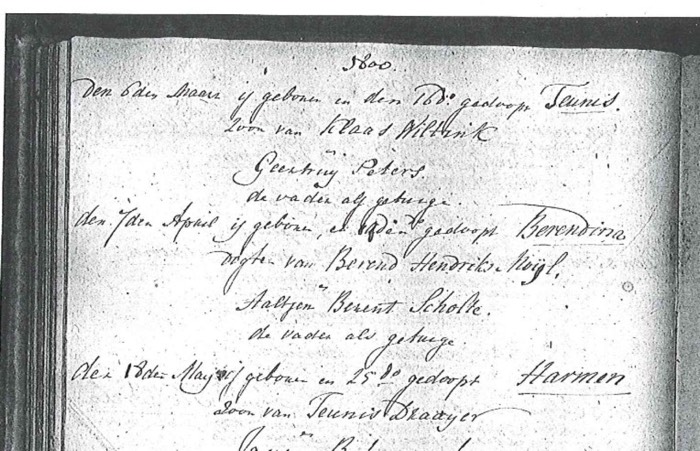 1800
den 6den Maart is gebooren en den 16do gedoopt Teunis.
Zoon van Klaas Wiltink
en
Geertruy Peters.
de vader als getuige
den 7den April is gebooren, en gedoopt Berendina
dogter van Berend Hendriks
en
Aaltjen Berent Scholte.
de vader als getuige
den 18den May is gebooren en 25do gedoopt Harmen
Zoon van Teunis Draayer
en